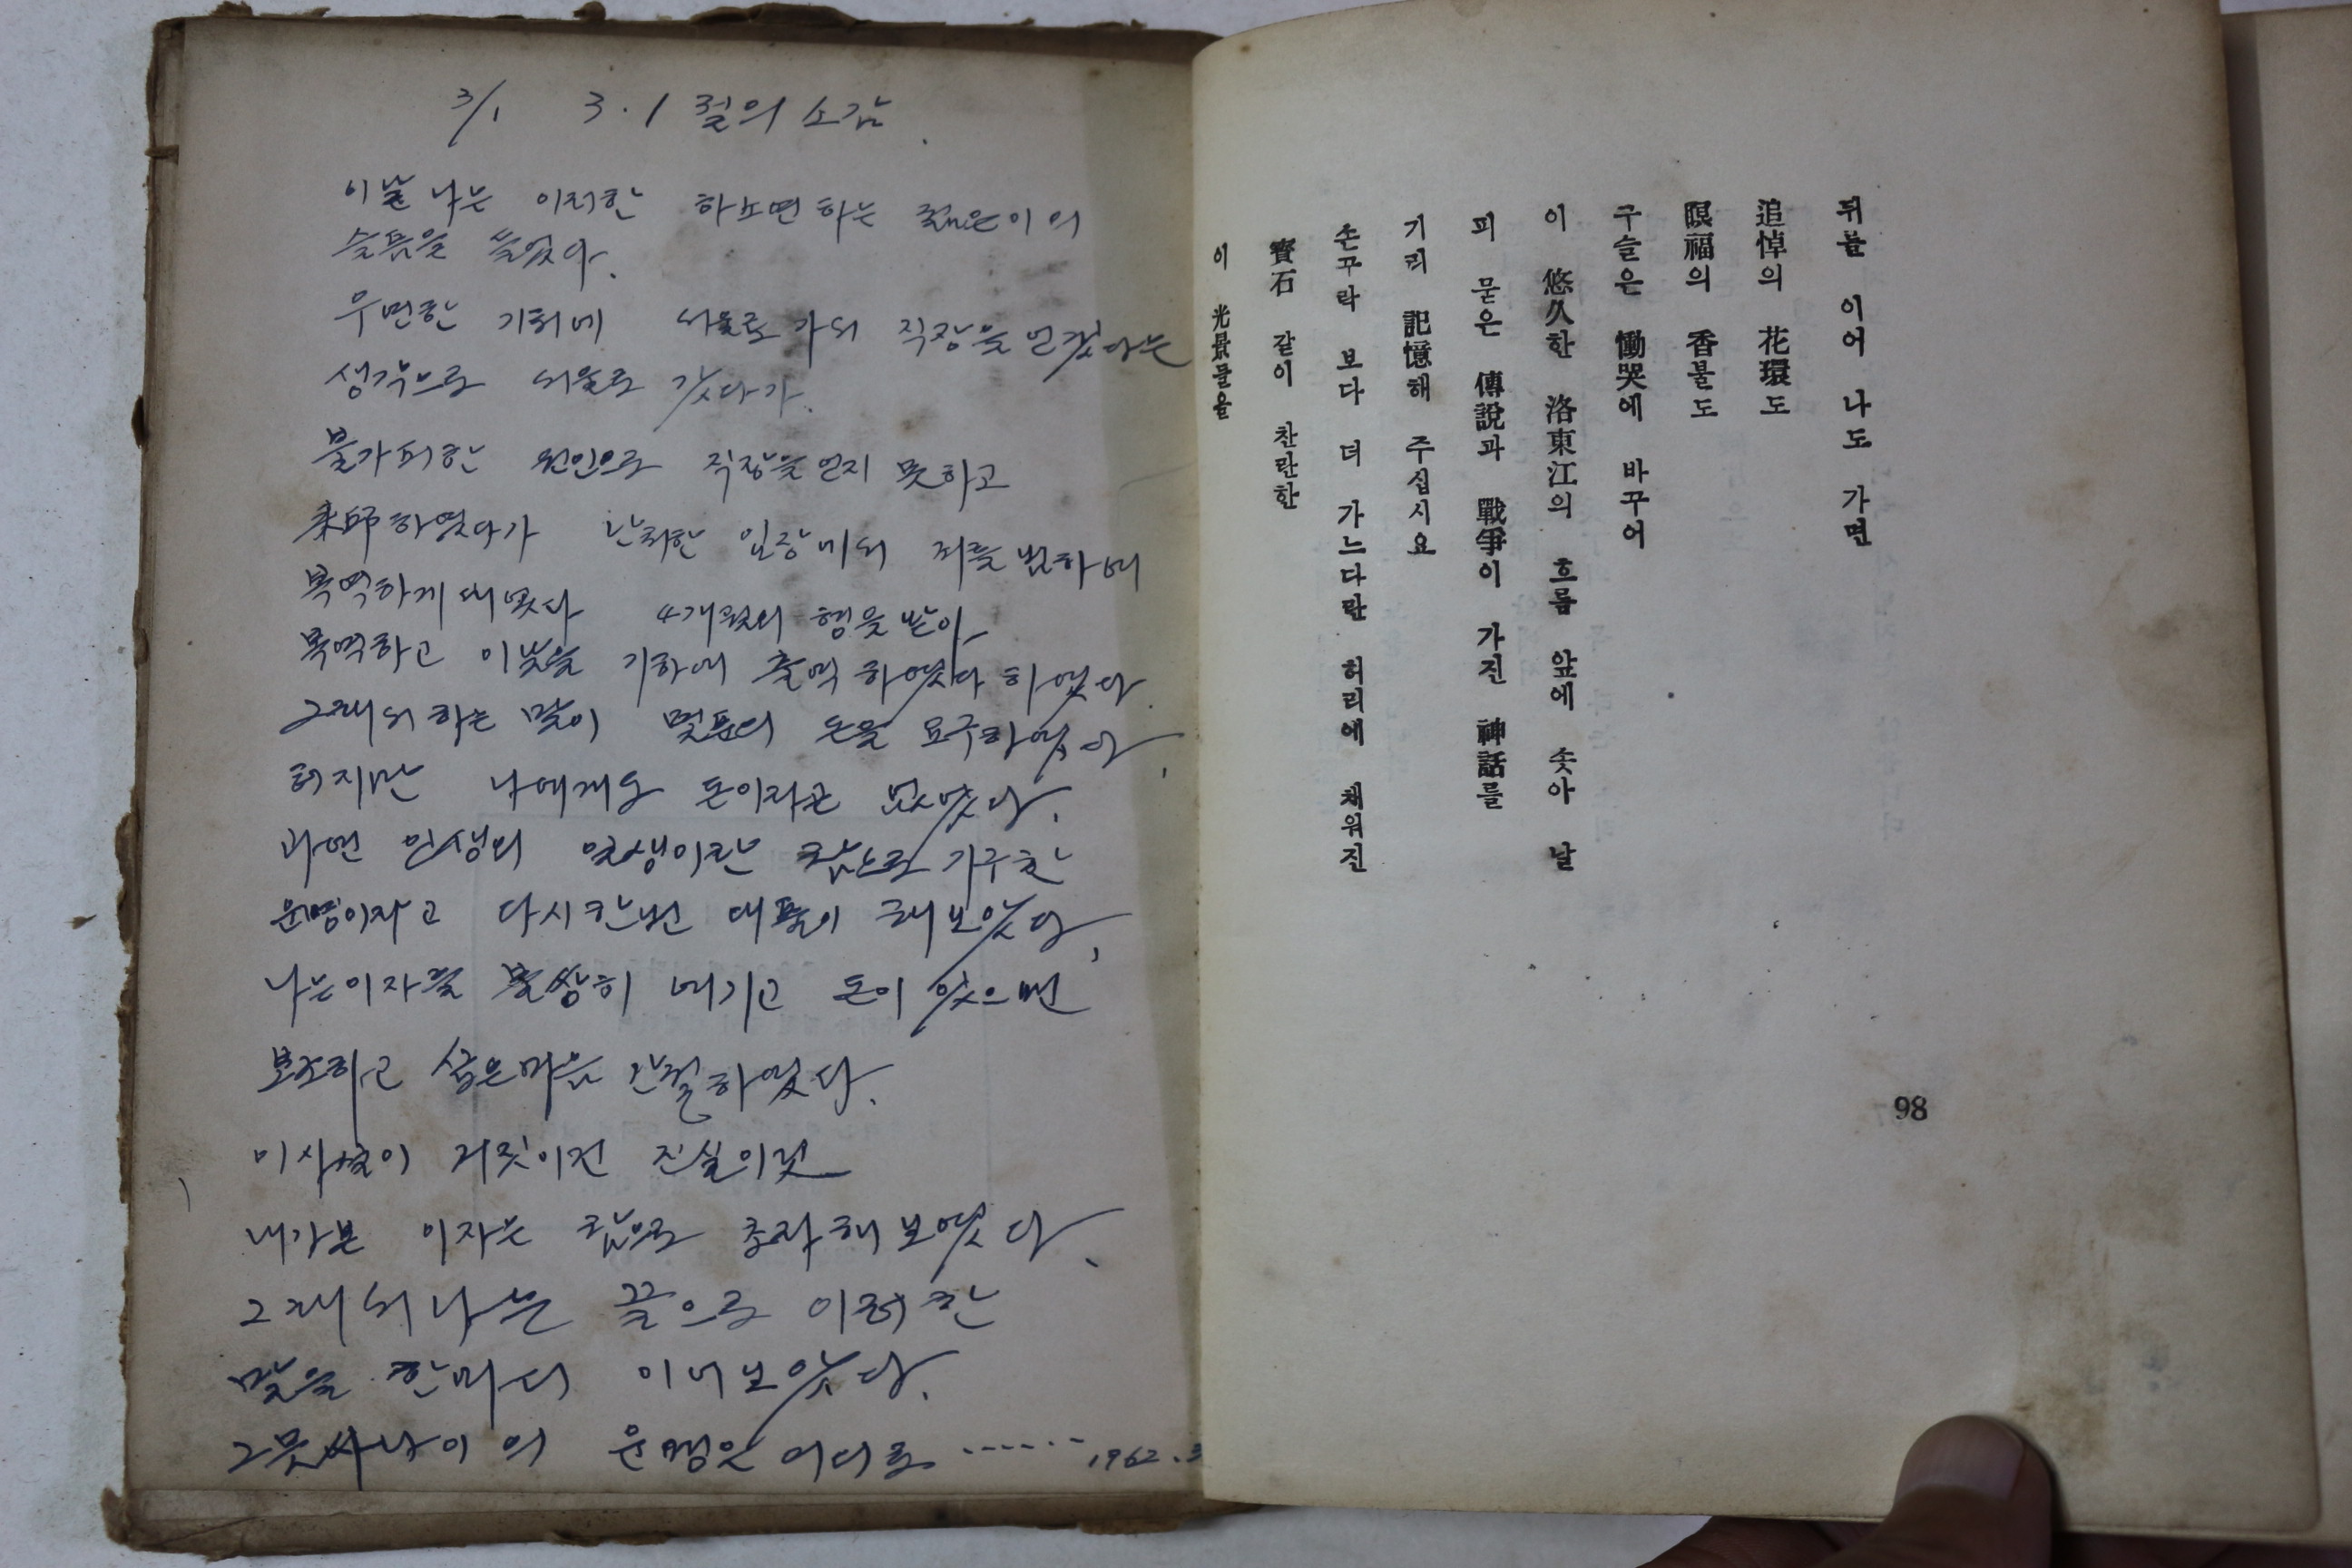 3/1 3.1 절의 소감.
이날 나는 이러한 하소면하는 젊은이의
슬픔을 들었다.
우연한 기회에 서울로 가서 직장을 얻겠다는
생각으로 서울로 갔다가.
불가피한 원인으로 직장을 얻지 못하고
하였다가 난처한 입장에서 죄를 범하여
복역하게 되였다 4개월의 형을 받아
복역하고 이날을 기하여 출역 하였다 하였다.
그래서 하는 말이 몇푼의 돈을 요구하였다.
허지만 나에게는 돈이라곤 없었다.
과연 인생의 일생이란 참으로 기구한
운명이라고 다시한번 해보았다.
나는 이자를 불쌍히 여기고 돈이 있으면
보조하고 싶은마음 간절하였다.
이사실이 거짓이건 진실이건
내가본 이자는 참으로 초라해 보였다.
그래서 나는 끝으로 이러한
말을 한마디 이어보았다.
그 사나이의 운명은 어디로 ...... 1962.3
뒤를 이어 나도 가면
追悼의 花環도
瞑福의 香불도
구슬은 慟哭에 바꾸어
이 悠久한 洛東江의 흐름 앞에 솟아 날
피 묻은 傳說과 戰爭이 가진 神話를
기리 記憶해 주십시요
손꾸락 보다 더 가느다란 허리에 채워진
寶石 같이 찬란한
이 光景들을
98